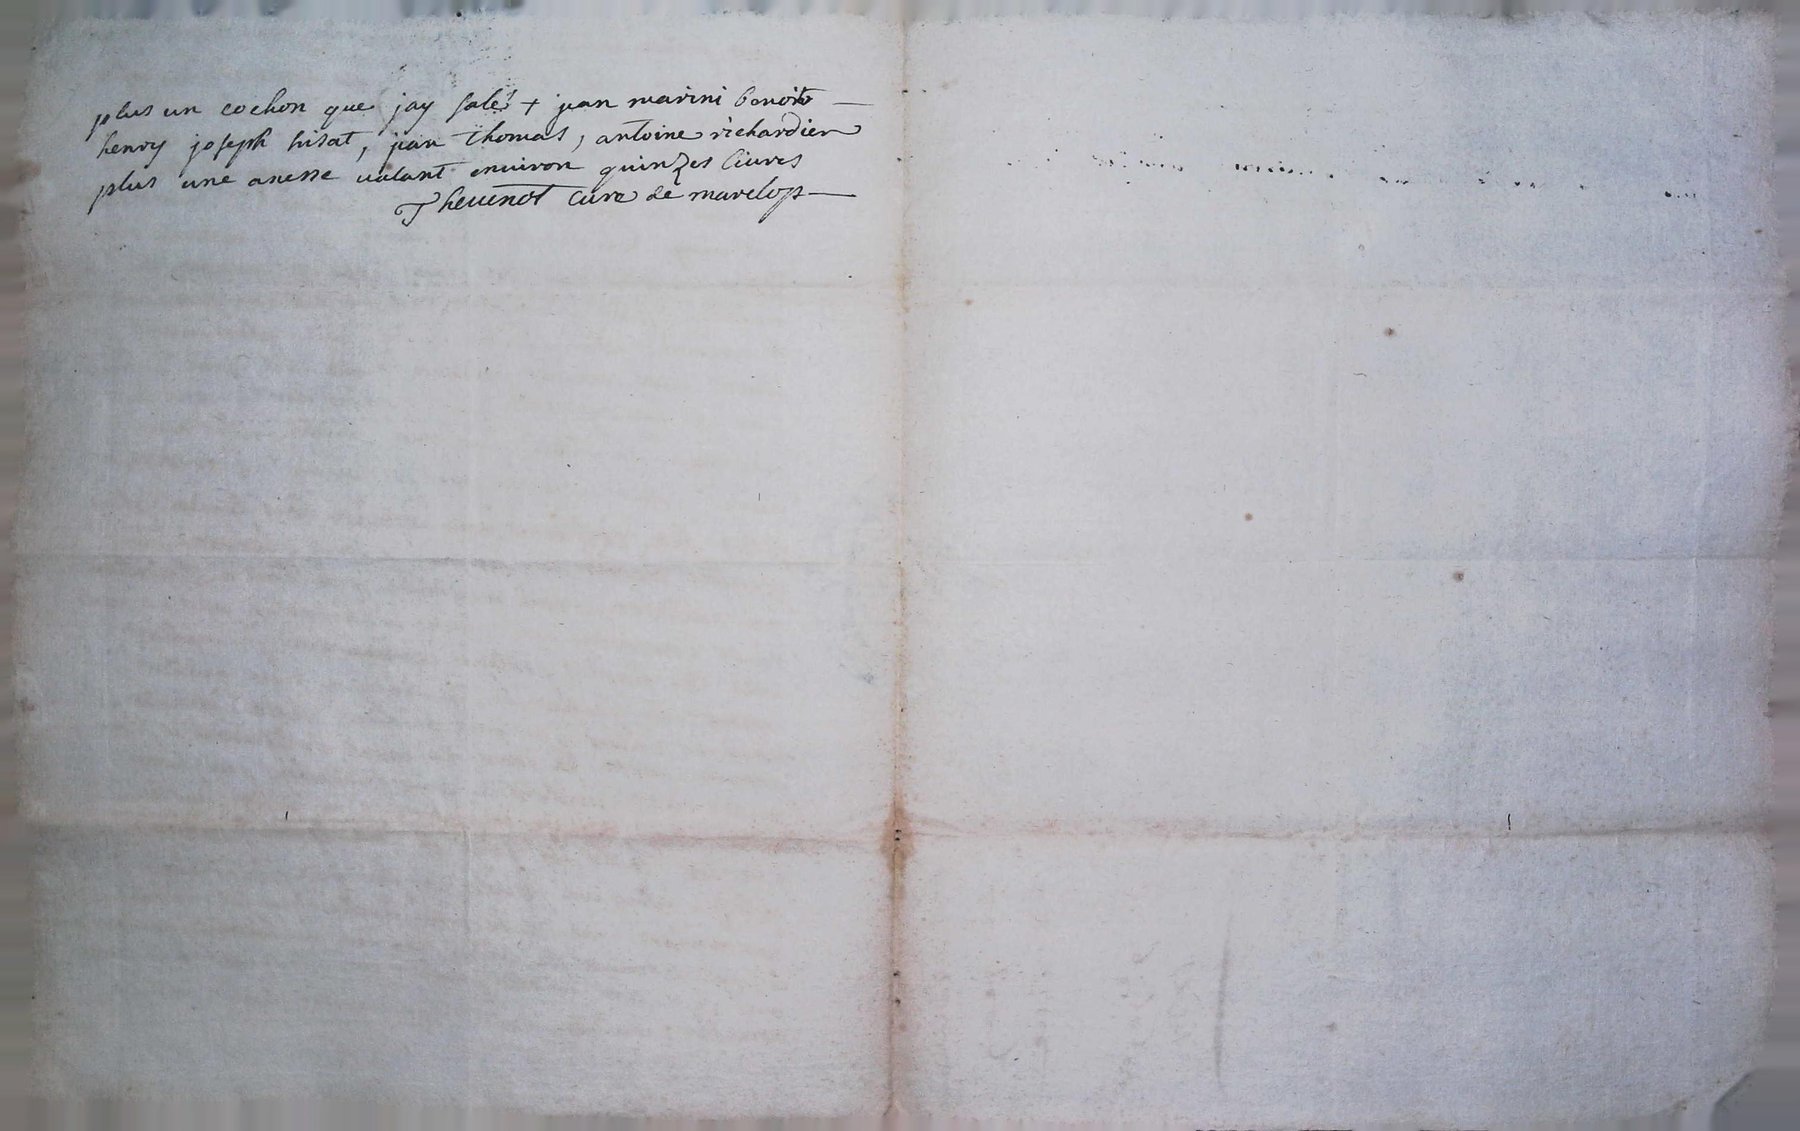 plus un cochon que jay salé + jean marini benoit
henry joseph hisat, jean thomas, antoine richardier
plus une anesse valant environ quinzes livres
Thevenot curé de marelops